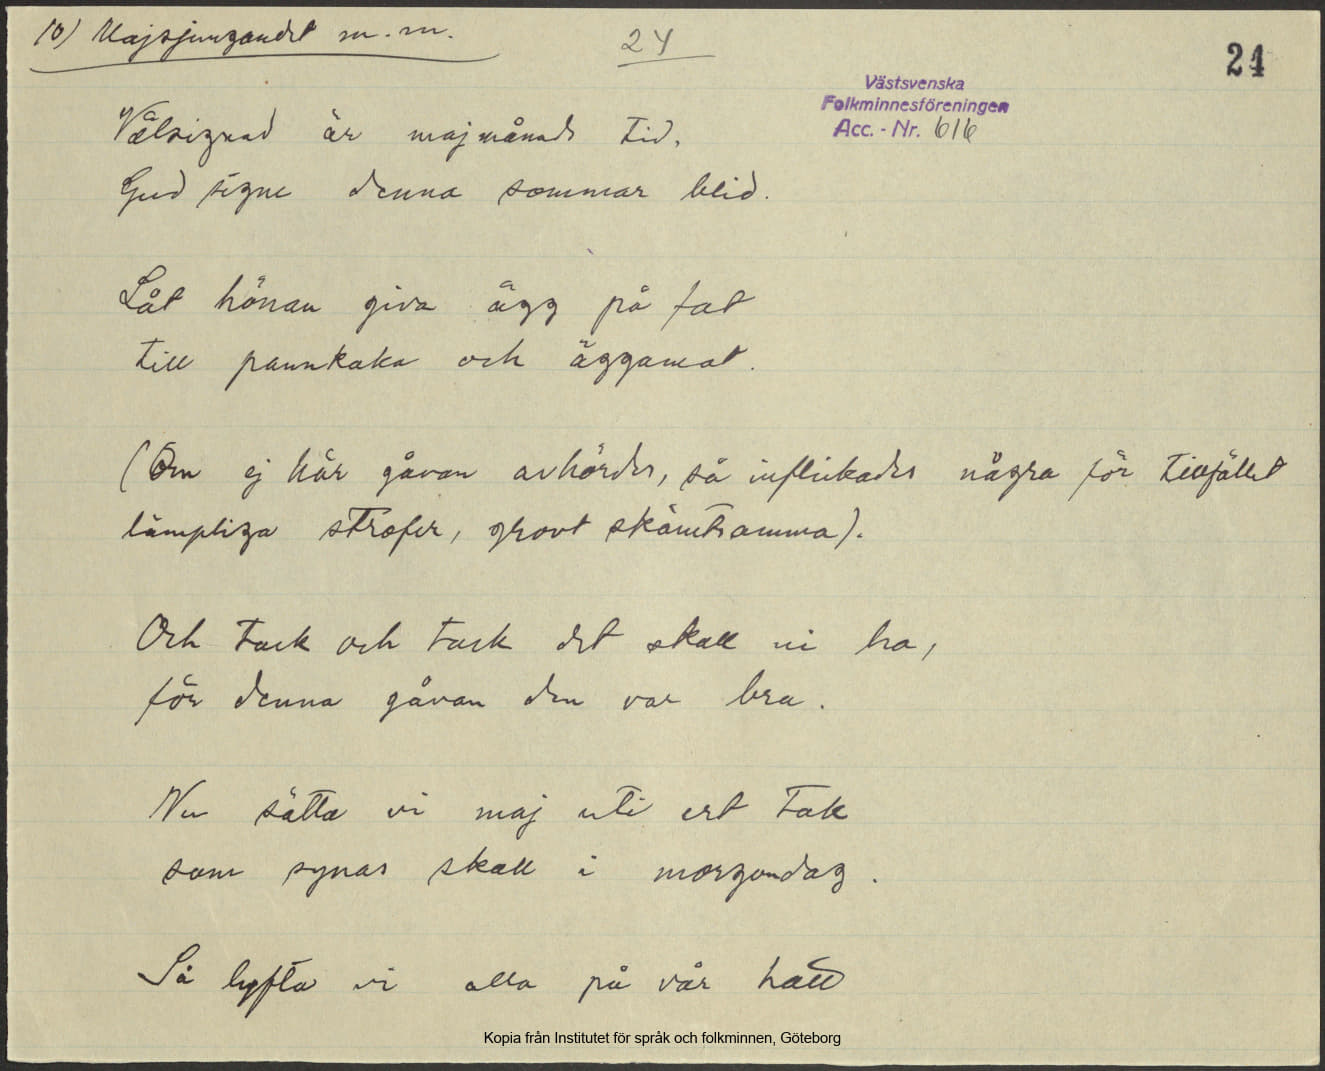 10) Majsjungandet m.m.
24
24
Västsvenska
Folkminnesföreningen
Acc.-Nr. 616
Välsignad är majmånads tid,
Gud signe denna sommar blid.
Låt hönan giva ägg på fat
till pannkaka och äggamat.
(Om ej här gåvan avhördes, så inflickades några för tillfället
lämpliga strofer, grovt skämtsamma).
Och tack och tack det skall ni ha,
för denna gåvan den var bra.
Nu sätta vi maj uti ert tak
som synas skall i morgondag.
Så lyfta vi alla på vår hatt
Kopia från Institutet för språk och folkminnen, Göteborg